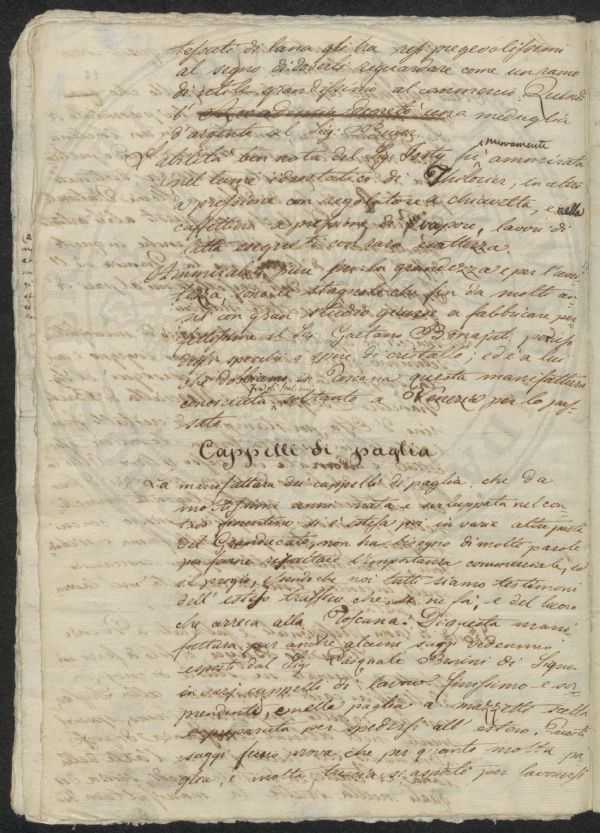 tessuti di lana gli ha resi pregevolissimi
al segno di doversi riguardare come un ramo
di utile grandissimo al commercio. Quindi
l'Accademia decretò una medaglia
d'argento al Sig.
L'abilità ben nota del Sig. fù nuovamente ammirata
nel lume idrostatico di Thilorier, in altro
a pressione con regolatore a chiavetta, e nella
caffettiera a pressione di vapore, lavori di
latta eseguiti con rara esattezza.
Ammirabili pure per la grandezza e per l'
stagnole che fin da molti an
ni con gran studio giunse a fabricare per
il Sig. Gaetano
specchi e spere di cristallo; ed è a lui
che dobbiamo in Toscana questa manifattura
conosciuta soltanto a Venezia per lo pas
sato
Cappelli di paglia
La manifattura dei cappelli di paglia, che da
moltissimi anni nata e sviluppata nel con
tado fiorentino si è estesa poi in varie altre parti
del Granducato, non ha bisogno di molte parole
per farne risaltare l'importanza commerciale, ed
il pregio, essendo che noi tutti siamo testimoni
dell'esteso traffico che se ne fà, e del lucro
che arreca alla Toscana. Di questa mani
fattura pur anche alcuni saggi vedemmo
esposti dal Sig. Pasquale di Signa
in varj cappelli di lavoro finissimo e sor
prendente, e nella paglia a mazzetti scelta
e preparata per spedirsi all'estero. Questi
saggi fanno prova, che per quanto molta pa
glia, e molta treccia si asporti per lavorarsi